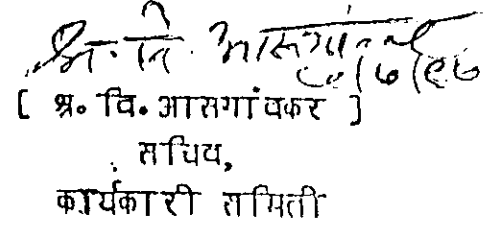 श्र. वि. आसगांवकर
[ श्र. वि. आसगांवकर ]
सचिव,
कार्यकारी समिती